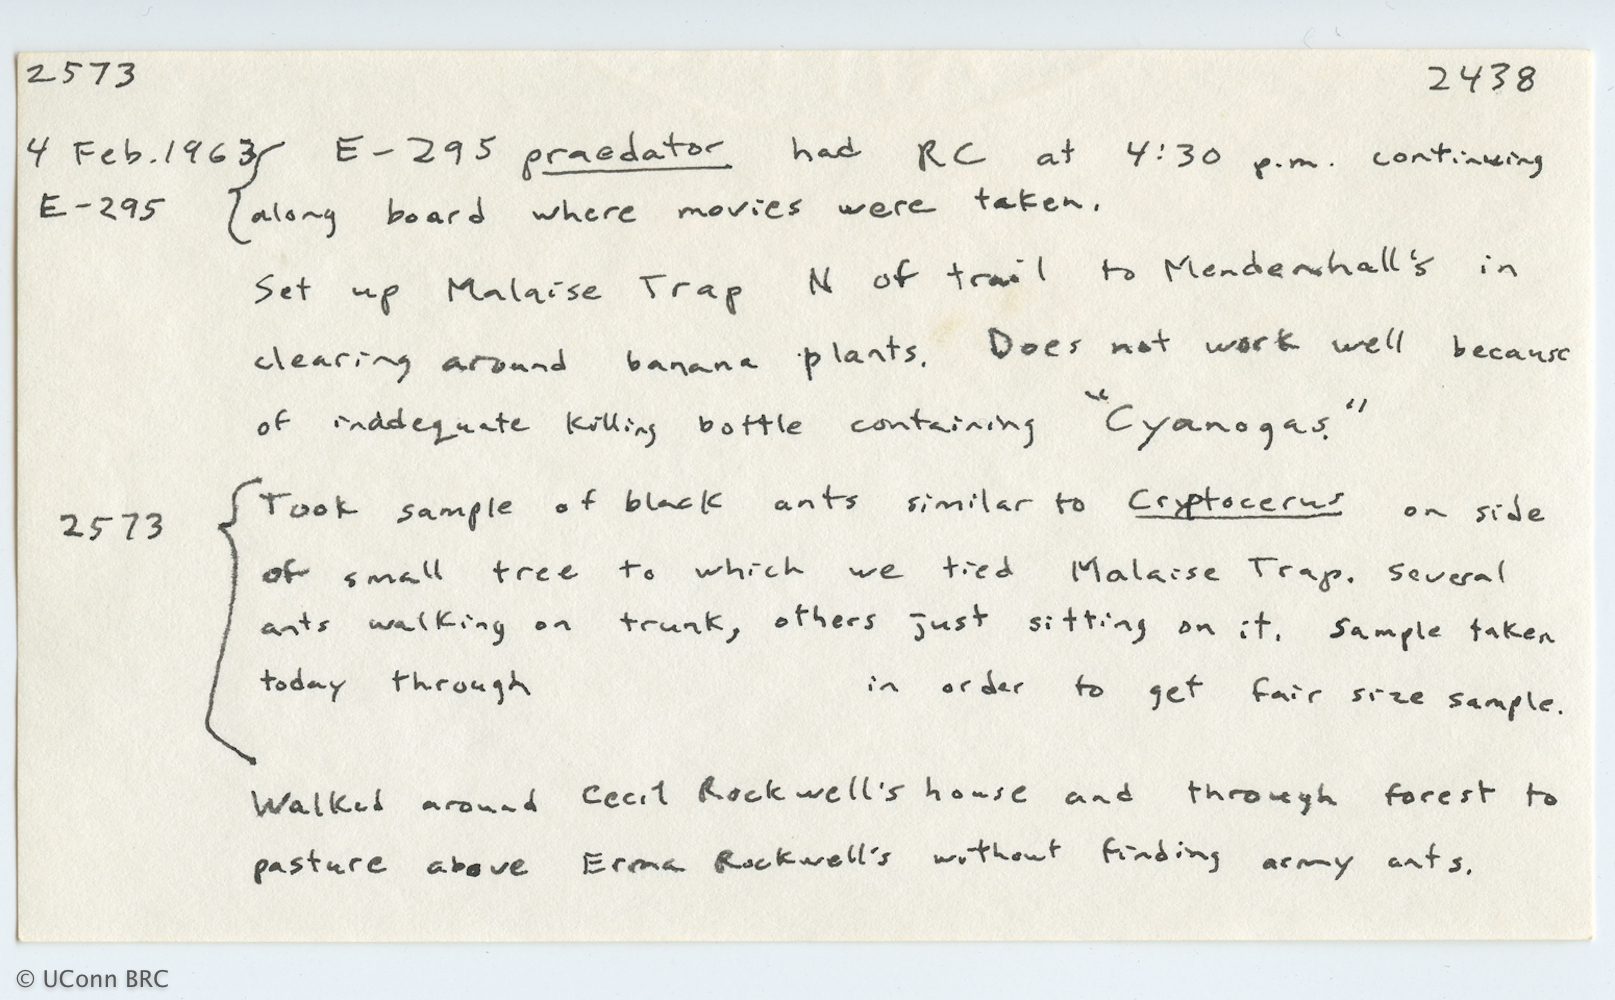 2573 2438
4 Feb. 1963 E-295 praedator had RC at 4:30 p.m. continuing
E-295 along board where movies were taken.
Set up Malaise Trap N of trail to Mendenhall's in
clearing around banana plants. Does not work well because
of inddequate killing bottle containing "Cyanogas."
Took sample of black ants similar to Cryptocerus on side
2573 of small tree to which we tied Malaise Trap. Several
ants walking on trunk, others just sitting on it. Sample taken
today through in order to get fair size sample.
Walked around Cecil Rockwell's house and through forest to
pasture above Erma Rockwell's without finding army ants.
© UConn BRC